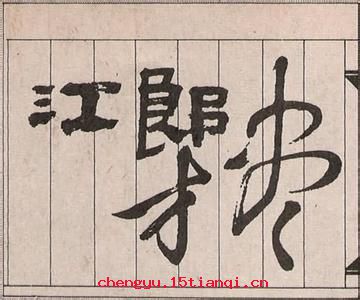 江郎才尽
chengyu.15tianqi.cn